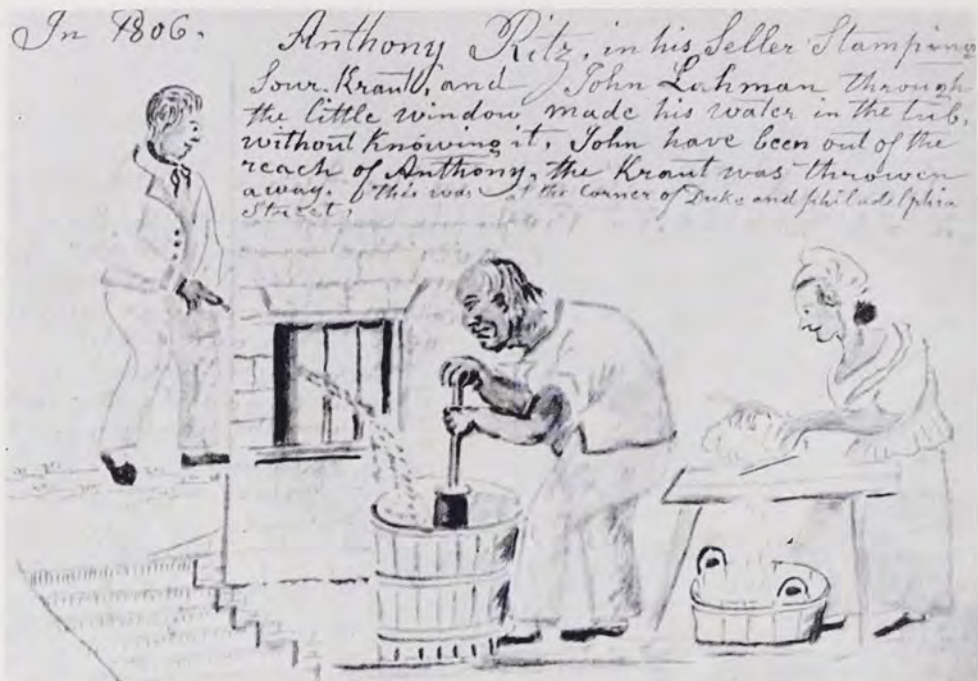 In 1806.
Anthony Ritz, in his Seller Stamping
Sour Kraut, and John Lehman through
the little window made his water in the tub,
without Knowing it, John have been out of the
reach of Anthony, the Kraut was throwen
away. this was at the Corner of Duke and philadelphia
Street,